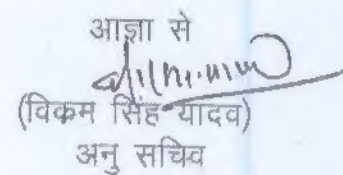 आज्ञा से
(विकम सिंह यादव)
अनु सचिव